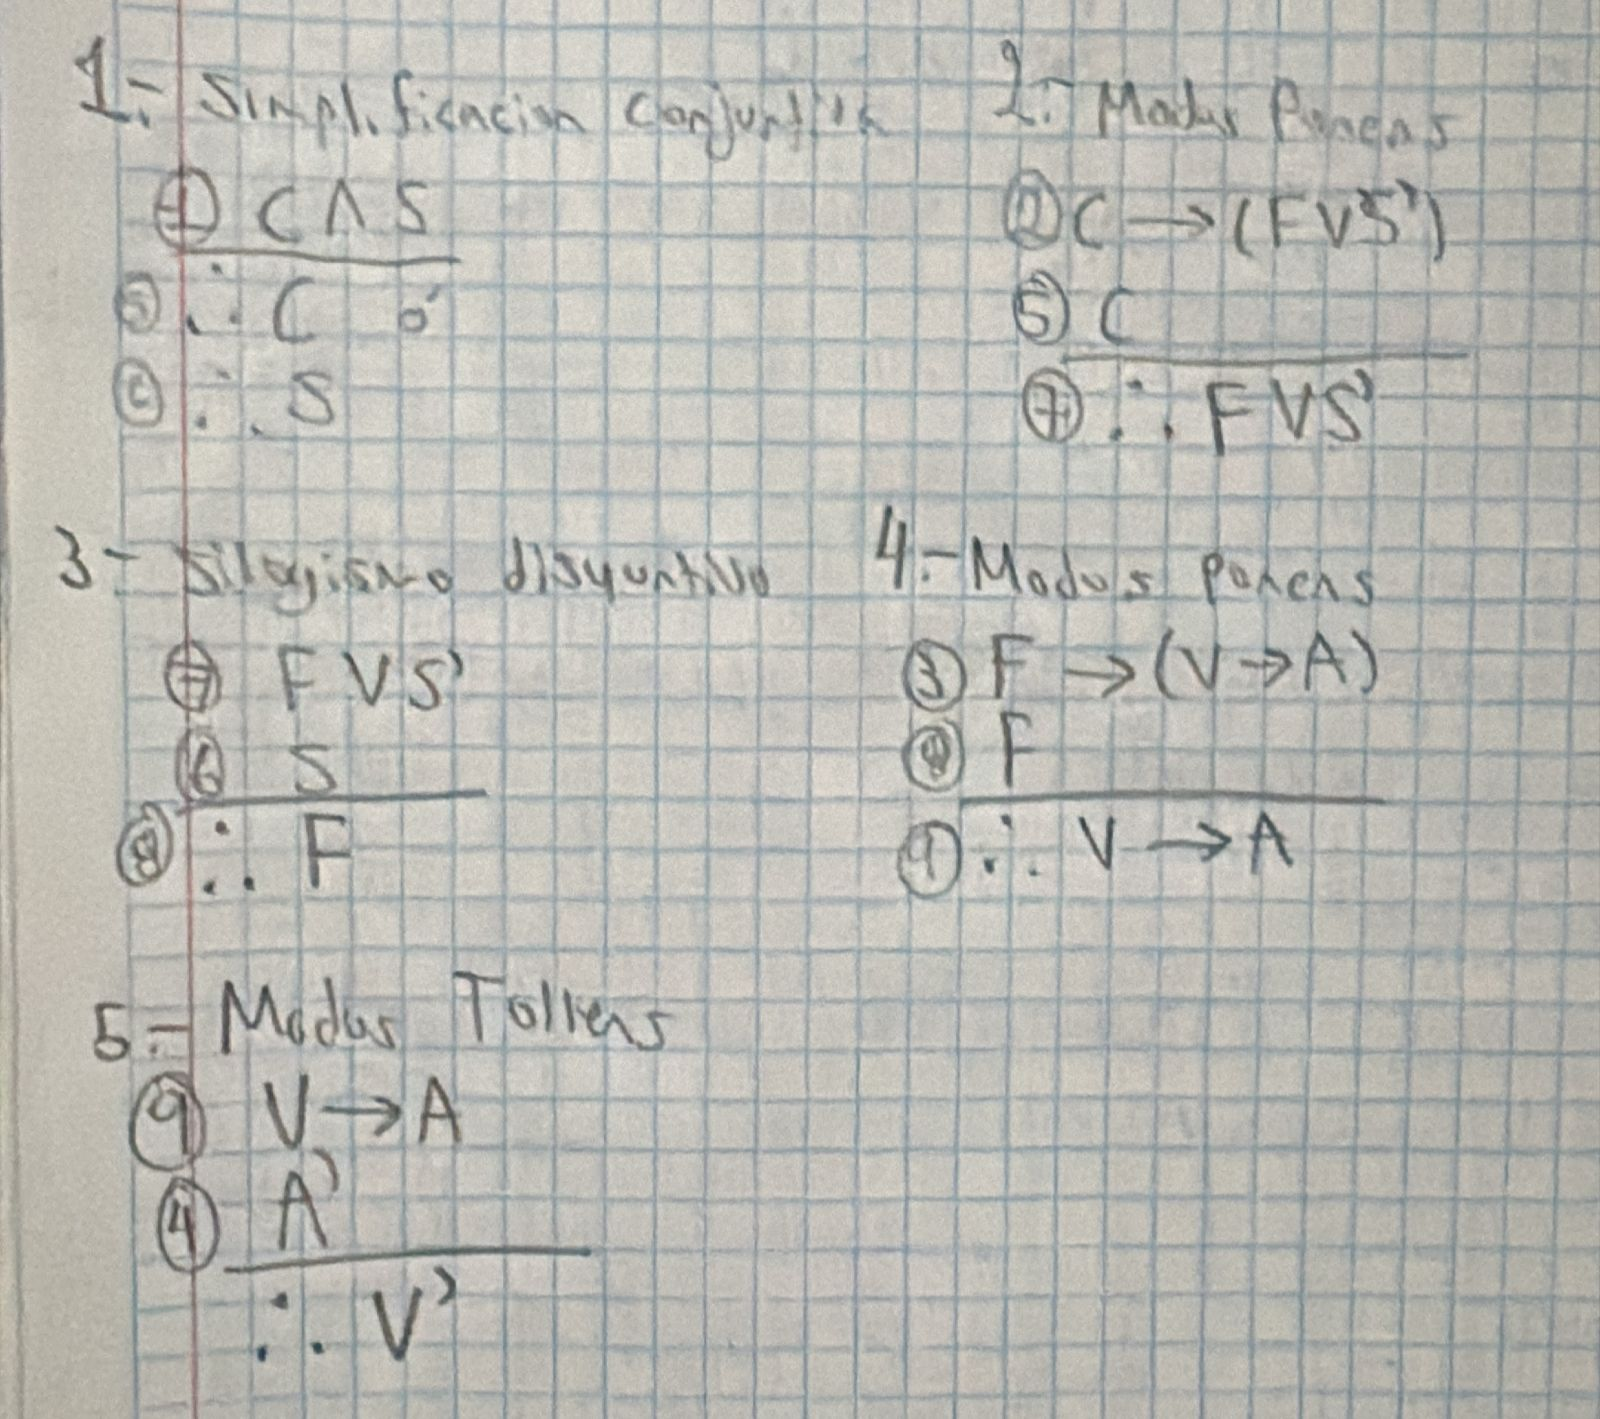 1.- Simplificacion conjuntiva
① C ∧ S
⑤ ∴ C ó
⑥ ∴ S
2.- Modus Ponens
② C → (F V S')
⑤ C
⑦ ∴ F V S'
3.- Silogismo disyuntivo
⑦ F V S'
⑥ S
⑧ ∴ F
4.- Modus ponens
③ F → (V → A)
⑧ F
⑨ ∴ V → A
5.- Modus Tollens
⑨ V → A
④ A'
∴ V'